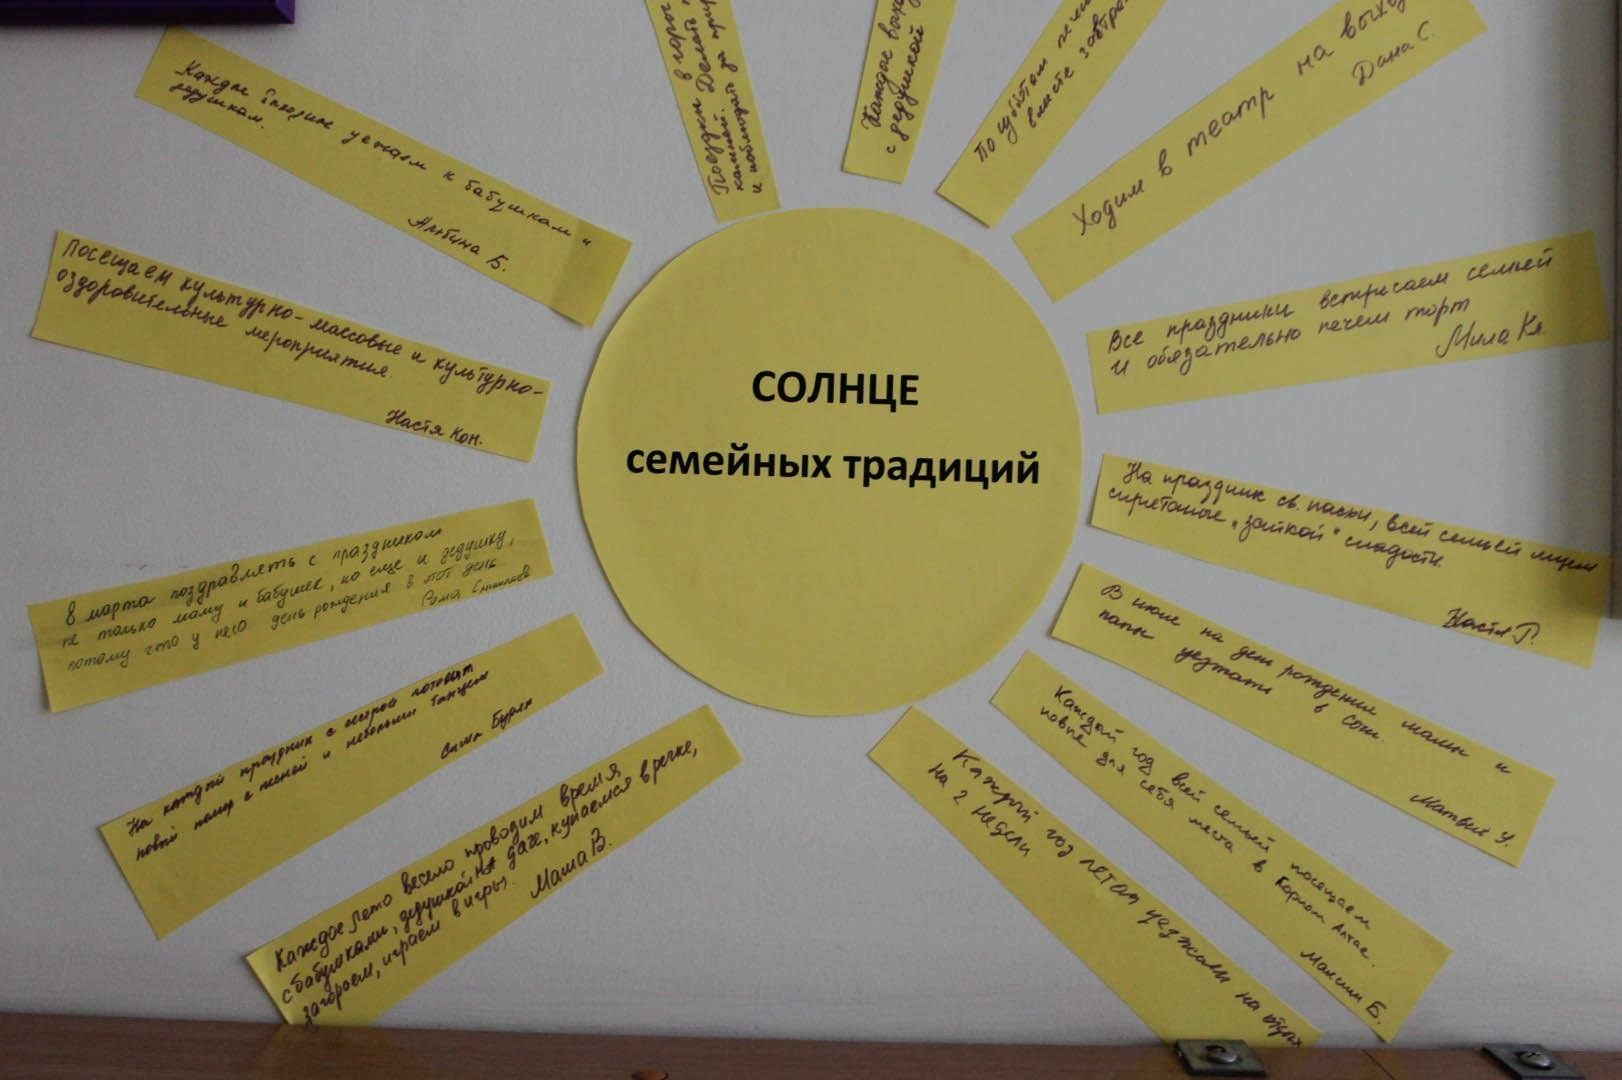 СОЛНЦЕ
семейных традиций
Каждое уезжаем к бабушкам и
дедушкам.
Альбина Б.
Посещаем культурно-массовые и культурно-
оздоровительные мероприятия.
Настя Кон.
8 марта поздравлять с праздником
не только маму и бабушек, но еще и дедушку,
потому что у него день рождения в этот день.
Рома
На каждый праздник с сестрой готовят
новый номер с песней и небольшим танцем
Саша
Каждое лето весело проводим время,
с бабушками, дедушкой на даче, купаемся в речке,
загораем, играем в игры.
Маша В.
Поездки в горо
камней. Делать
и наблюдать за при
Каждые вых
с дедушкой
По субботам
вместе завтра
Ходим в театр на выхо
Дана С.
Все праздники встречаем семьей
и обязательно печем торт
Мила Кл.
На праздник св. пасхи, всей семьей ищем
спрятаные "зайкой" сладости.
Настя Г.
В июне на день рождения мамы и
папы уезжать в Сочи
Матвей У.
Каждый год всей семьей посещаем
новые для себя места в Горном Алтае.
Максим Б.
Каждый год летом уезжаем на отдых
на 2 недели